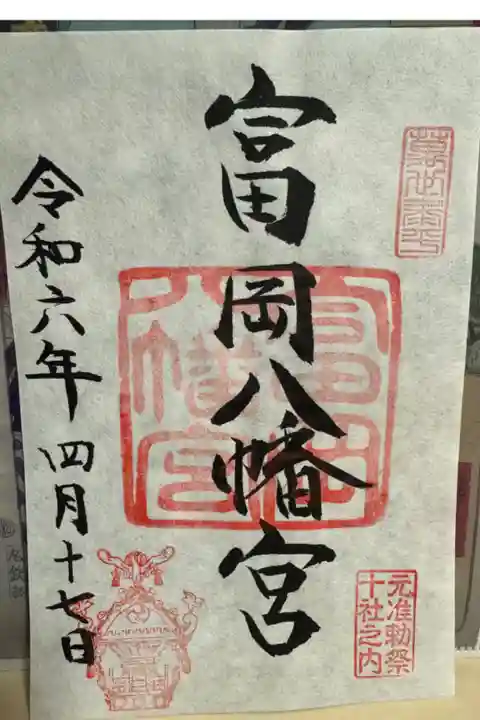 萬世泰平
富岡八幡宮
富岡
八幡宮
元准勅祭
十社之内
令和六年四月十七日